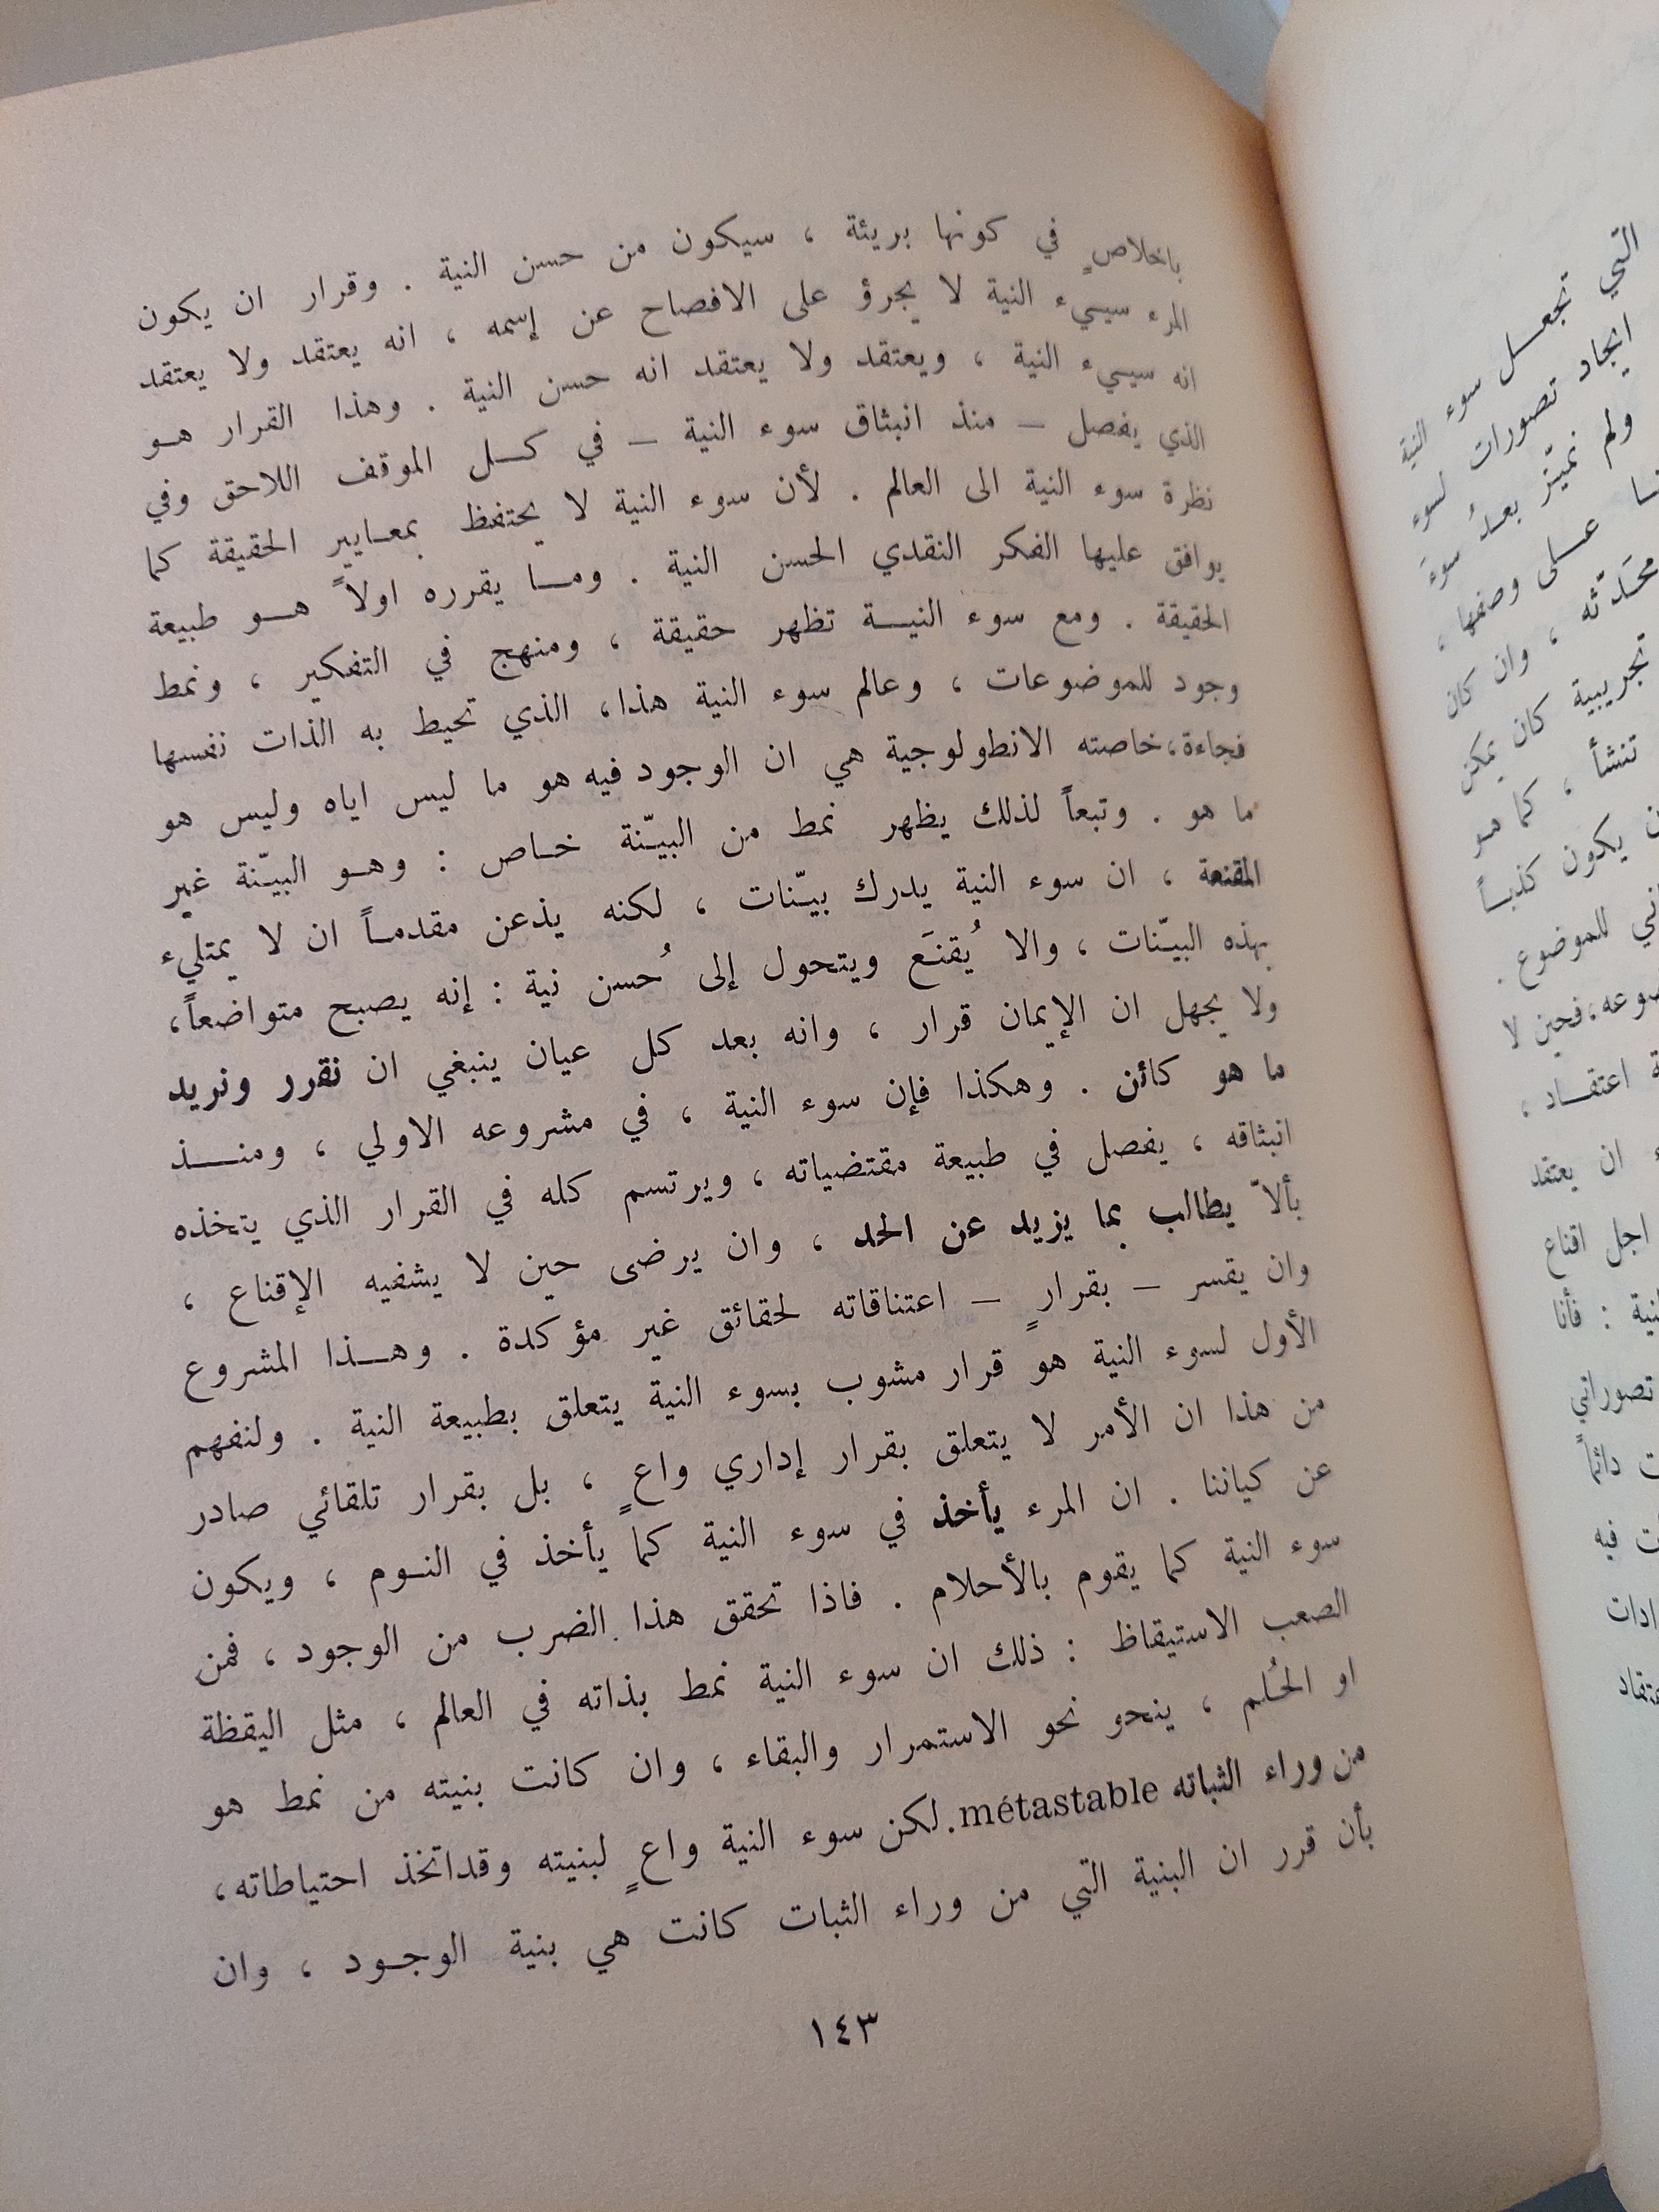 باخلاصٍ في كونها بريئة ، سيكون من حسن النية . وقرار ان يكون
المرء سيىء النية لا يجرؤ على الافصاح عن إسمه ، انه يعتقد ولا يعتقد
انه سيىء النية ، ويعتقد ولا يعتقد انه حسن النية . وهذا القرار هو
الذي يفصل – منذ انبثاق سوء النية – في كل الموقف اللاحق وفي
نظرة سوء النية الى العالم . لأن سوء النية لا يحتفظ بمعايير الحقيقة كما
يوافق عليها الفكر النقدي الحسن النية . وما يقرره اولاً هو طبيعة
الحقيقة . ومع سوء النية تظهر حقيقة ، ومنهج في التفكير ، ونمط
وجود للموضوعات ، وعالم سوء النية هذا، الذي تحيط به الذات نفسها
فجاءة، خاصته الانطولوجية هي ان الوجود فيه هو ما ليس اياه وليس هو
ما هو . وتبعاً لذلك يظهر نمط من البيّنة خاص : وهو البيّنة غير
المقنعة ، ان سوء النية يدرك بيّنات ، لكنه يذعن مقدماً ان لا يمتلىء
بهذه البيّنات ، والا يُقنَع ويتحول إلى حُسن نية : إنه يصبح متواضعاً،
ولا يجهل ان الإيمان قرار ، وانه بعد كل عيان ينبغي ان نقرر ونريد
ما هو كائن . وهكذا فإن سوء النية ، في مشروعه الاولي ، ومنذ
انبثاقه ، يفصل في طبيعة مقتضياته ، ويرتسم كله في القرار الذي يتخذه
بألاّ يطالب بما يزيد عن الحد ، وان يرضى حين لا يشفيه الإقناع ،
وان يقسر – بقرارٍ – اعتناقاته لحقائق غير مؤكدة . وهذا المشروع
الأول لسوء النية هو قرار مشوب بسوء النية يتعلق بطبيعة النية . ولنفهم
من هذا ان الأمر لا يتعلق بقرار إداري واعٍ ، بل بقرار تلقائي صادر
عن كياننا . ان المرء يأخذ في سوء النية كما يأخذ في النوم ، ويكون
سوء النية كما يقوم بالأحلام . فاذا تحقق هذا الضرب من الوجود ، فمن
الصعب الاستيقاظ : ذلك ان سوء النية نمط بذاته في العالم ، مثل اليقظة
او الحُلم ، ينحو نحو الاستمرار والبقاء ، وان كانت بنيته من نمط هو
من وراء الثباته métastable. لكن سوء النية واعٍ لبنيته وقداتخذ احتياطاته،
بأن قرر ان البنية التي من وراء الثبات كانت هي بنية الوجود ، وان
١٤٣
التي تجعل سوء النية
ايجاد تصورات لسوء
ولم نميّز بعدُ سوءَ
على وصفها ،
محَدّثه ، وان كان
تجريبية كان يمكن
تنشأ ، كما هو
يكون كذباً
للموضوع .
فحين لا
اعتقاد ،
ان يعتقد
اجل اقناع
: فأنا
تصوراتي
دائماً
فيه